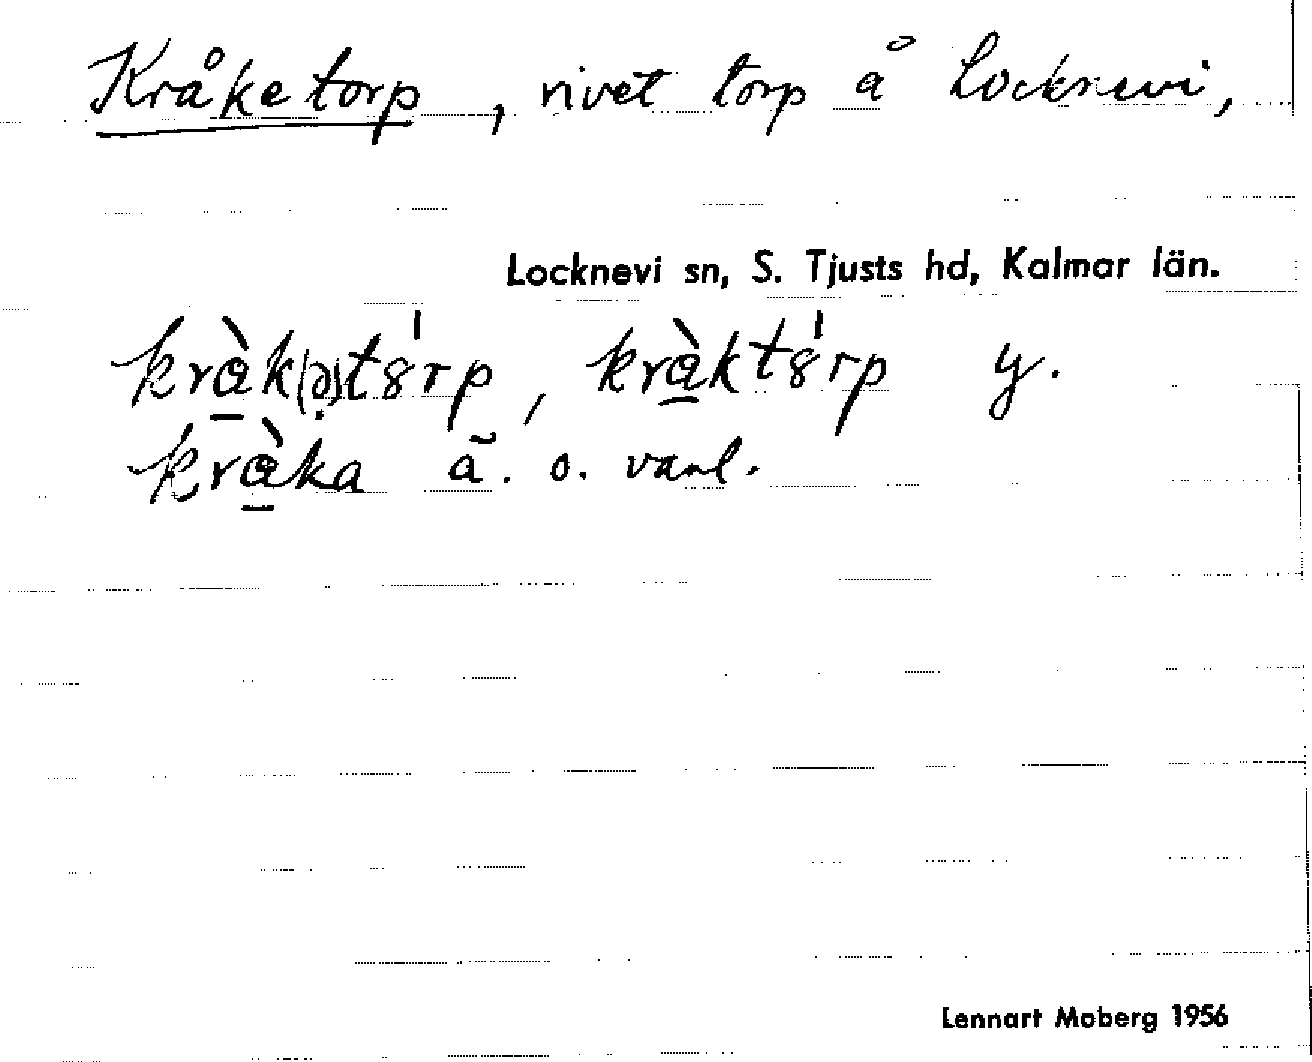 Kråketorp, rivet torp å Locknevi,
Locknevi sn, S. Tjusts hd, Kalmar län.
kràk(ə)tȣ́rp, kràktȣ́rp y.
kràka ä. o. vanl.
Lennart Moberg 1956